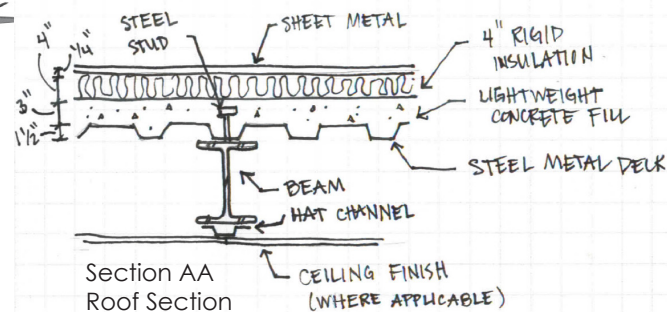 STEEL
STUD
SHEET METAL
4" RIGID
INSULATION
LIGHTWEIGHT
CONCRETE FILL
STEEL METAL DECK
1/4"
4"
3"
1 1/2"
BEAM
HAT CHANNEL
CEILING FINISH
(WHERE APPLICABLE)
Section AA
Roof Section